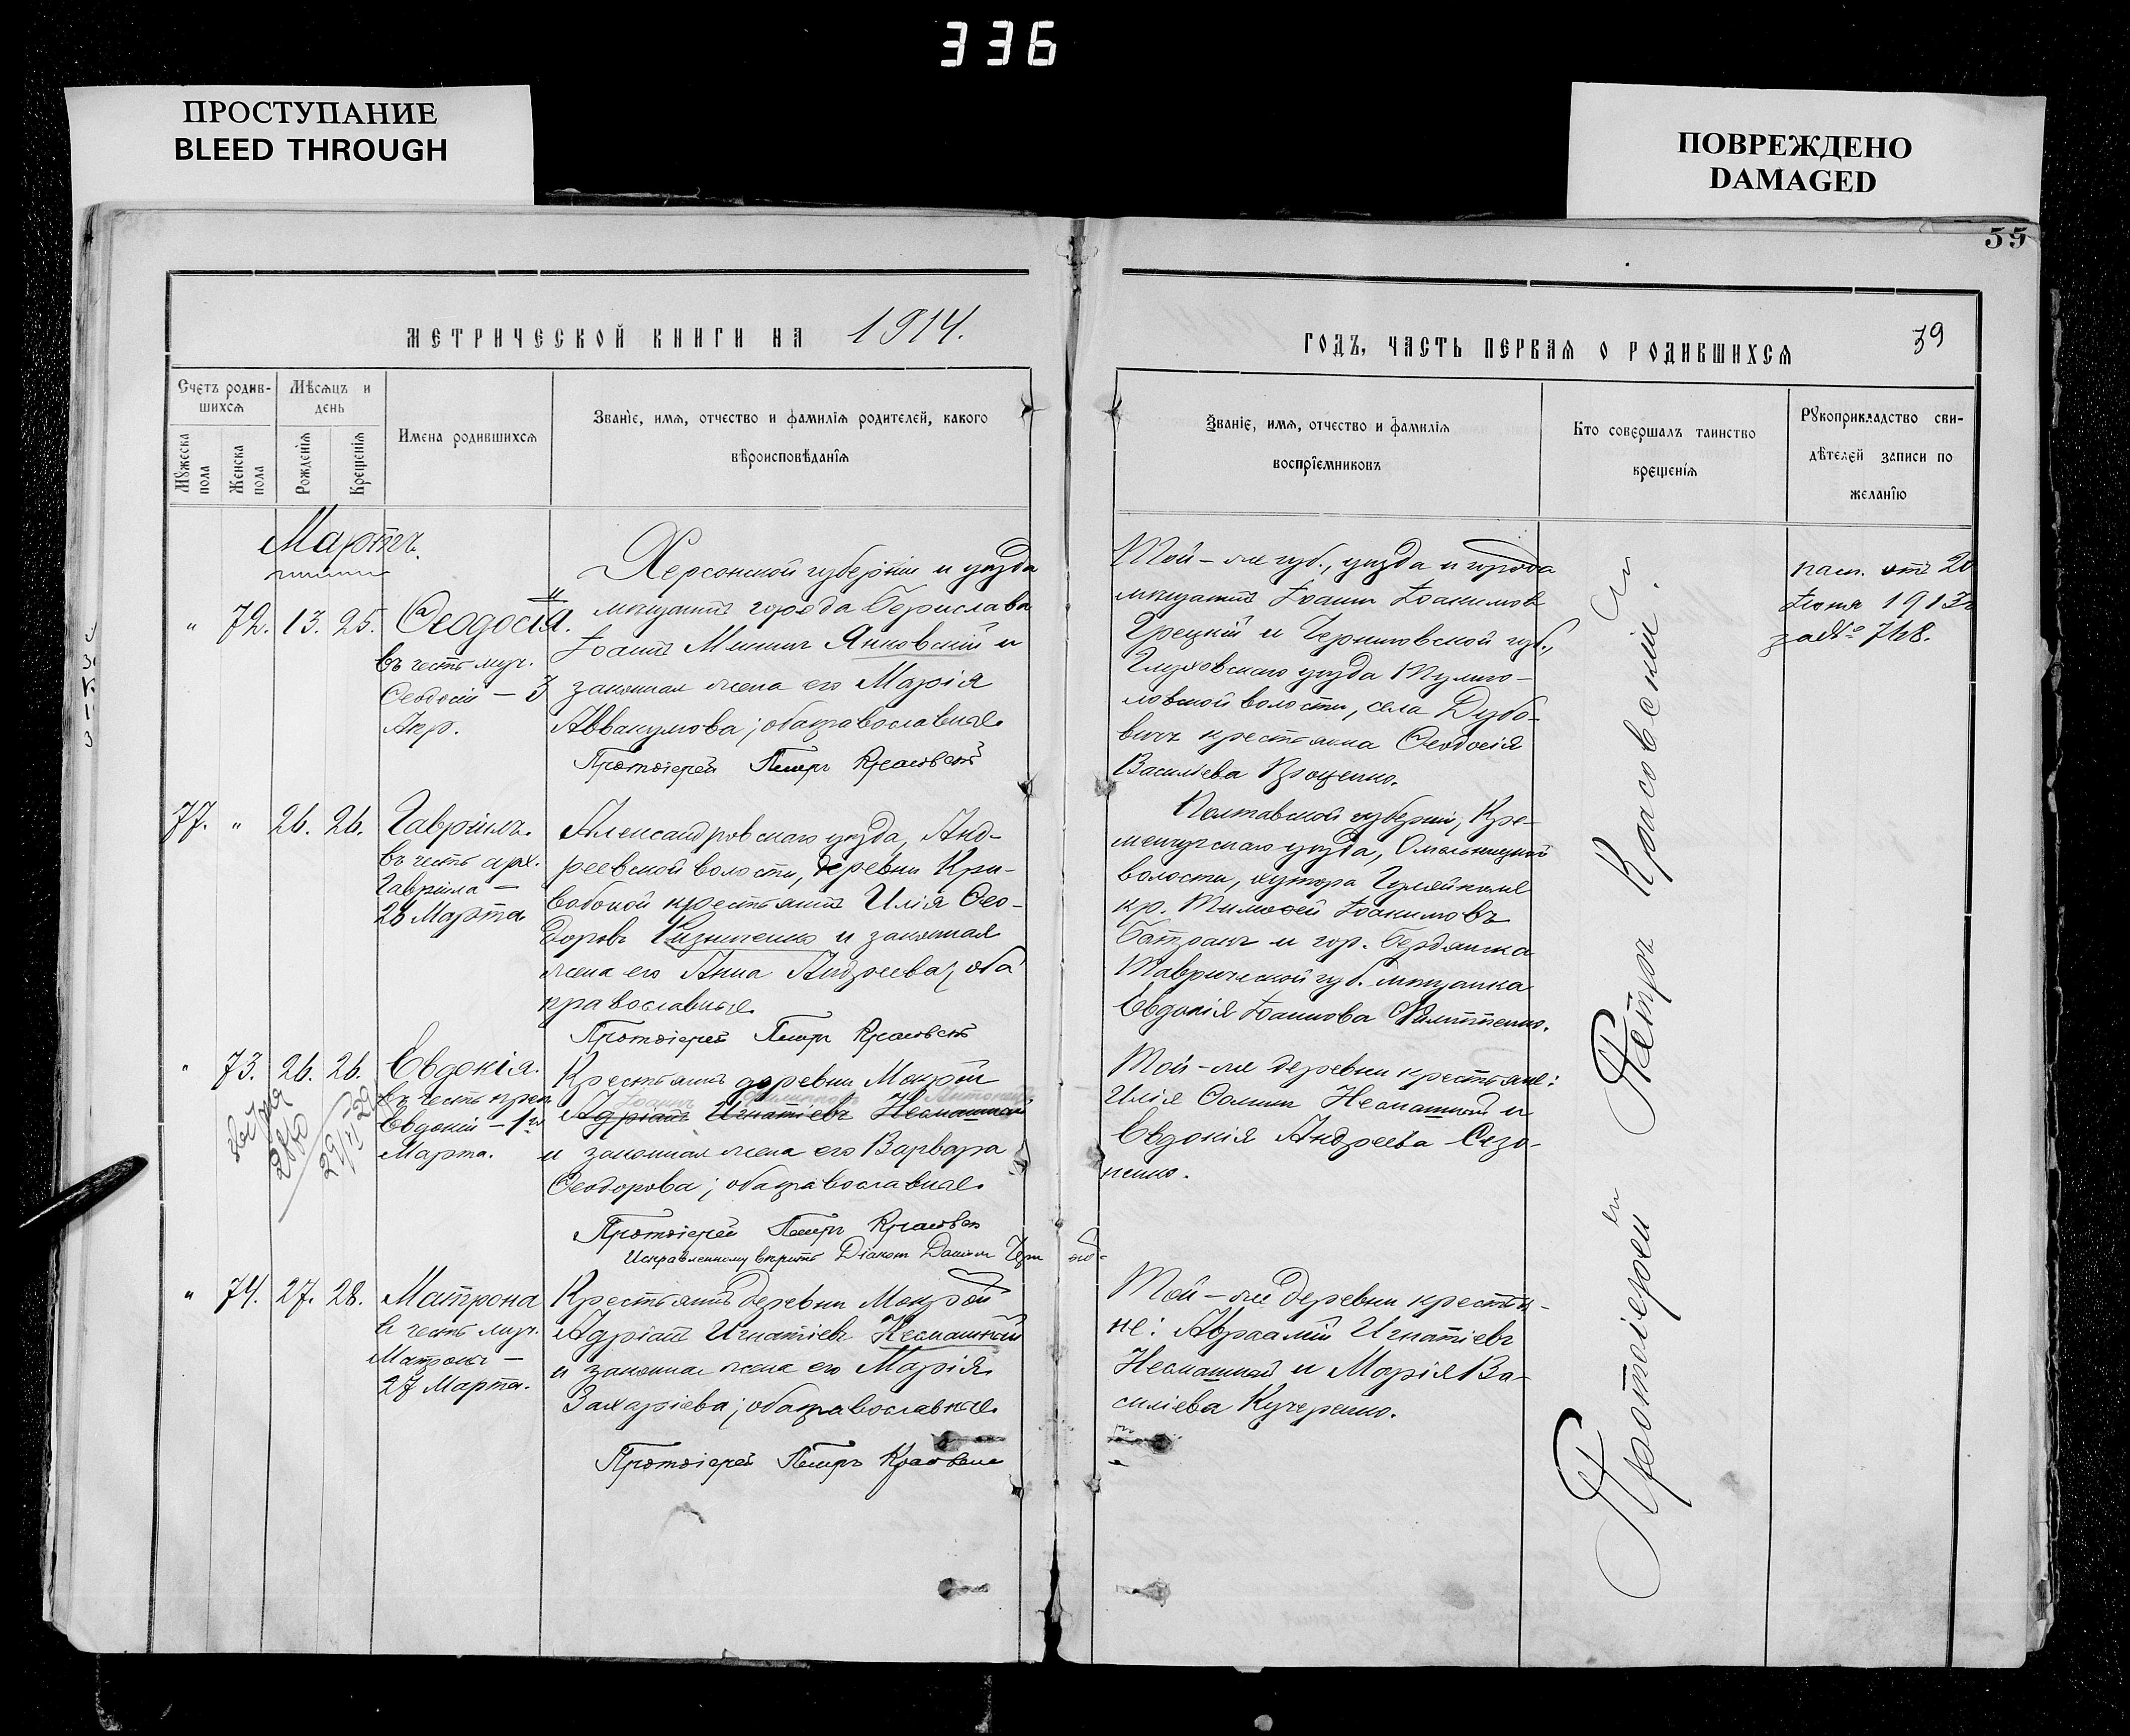 336
ПРОСТУПАНИЕ
BLEED THROUGH
ПОВРЕЖДЕНО
DAMAGED
55
МЕТРИЧЕСКОЙ КНИГИ НА 1914.
Счетъ родив-
шихся
Мѣсяцъ и
день
Мужеска
пола
Женска
пола
Рожденія
Крещенія
Имена родившихся
Званіе, имя, отчество и фамилія родителей, какого
вѣроисповѣданія
Мартъ.
" 72. 13. 25. Ѳеодосія.
въ честь муч.
Ѳеодосіи – 3
Апр.
Херсонской губерніи и уѣзда
мѣщанинъ города Берислава
Іоаннъ Мининъ Янковскій и
законная жена его Марія
Аввакумова; оба православные.
Протоіерей Петръ Красовскій
77. " 26. 26. Гавріилъ.
въ честь арх.
Гавріила –
26 Марта.
Александровскаго уѣзда, Анд-
реевской волости, деревни Кри-
вобокой крестьянинъ Илія Ѳео-
доровъ и законная
жена его Анна Андреева; оба
православные.
Протоіерей Петръ Красовскій
" 73. 26. 26. Евдокія.
въ честь преп.
Евдокіи – 1го
Марта.
2880
Крестьянинъ деревни Мокрой
Іоаннъ
Адріанъ Игнатіевъ Несмашный
и законная жена его Варвара
Ѳеодорова; оба православные.
Протоіерей Петръ Красовскій
Исправленному вѣрить Діаконъ
" 74. 27. 28. Матрона
въ честь муч.
Матроны –
27 Марта.
Крестьянинъ деревни Мокрой
Адріанъ Игнатіевъ Несмашный
и законная жена его Марія
Захаріева; оба православные.
Протоіерей Петръ Красовскій
ГОДЪ, ЧАСТЬ ПЕРВАЯ О РОДИВШИХСЯ
39
Званіе, имя, отчество и фамилія
воспріемниковъ
Кто совершалъ таинство
крещенія
Рукоприкладство сви-
дѣтелей записи по
желанію
Той-же губ., уѣзда и города
мѣщанинъ Іоаннъ Іоакимовъ
Грецкій и Черниговской губ.,
Глуховскаго уѣзда Тулиго-
ловской волости, села Дубо-
вичъ крестьянка Ѳеодосія
Василіева
Полтавской губерніи, Кре-
менчугскаго уѣзда, Омельницкой
волости, хутора
кр. Тимоѳей Іоакимовъ
Батракъ и гор. Бердянска
Таврической губ. мѣщанка
Евдокія Іоаннова
Той-же деревни крестьяне:
Илія Ѳоминъ Несмашный и
Евдокія Андреева Сизо-
ненко.
Той-же деревни крестья-
не: Авраамій Игнатіевъ
Несмашный и Марія Ва-
силіева Кучеренко.
Протоіерей Петръ Красовскій.
пасп. отъ 20
Іюня 1913г
за № 768.